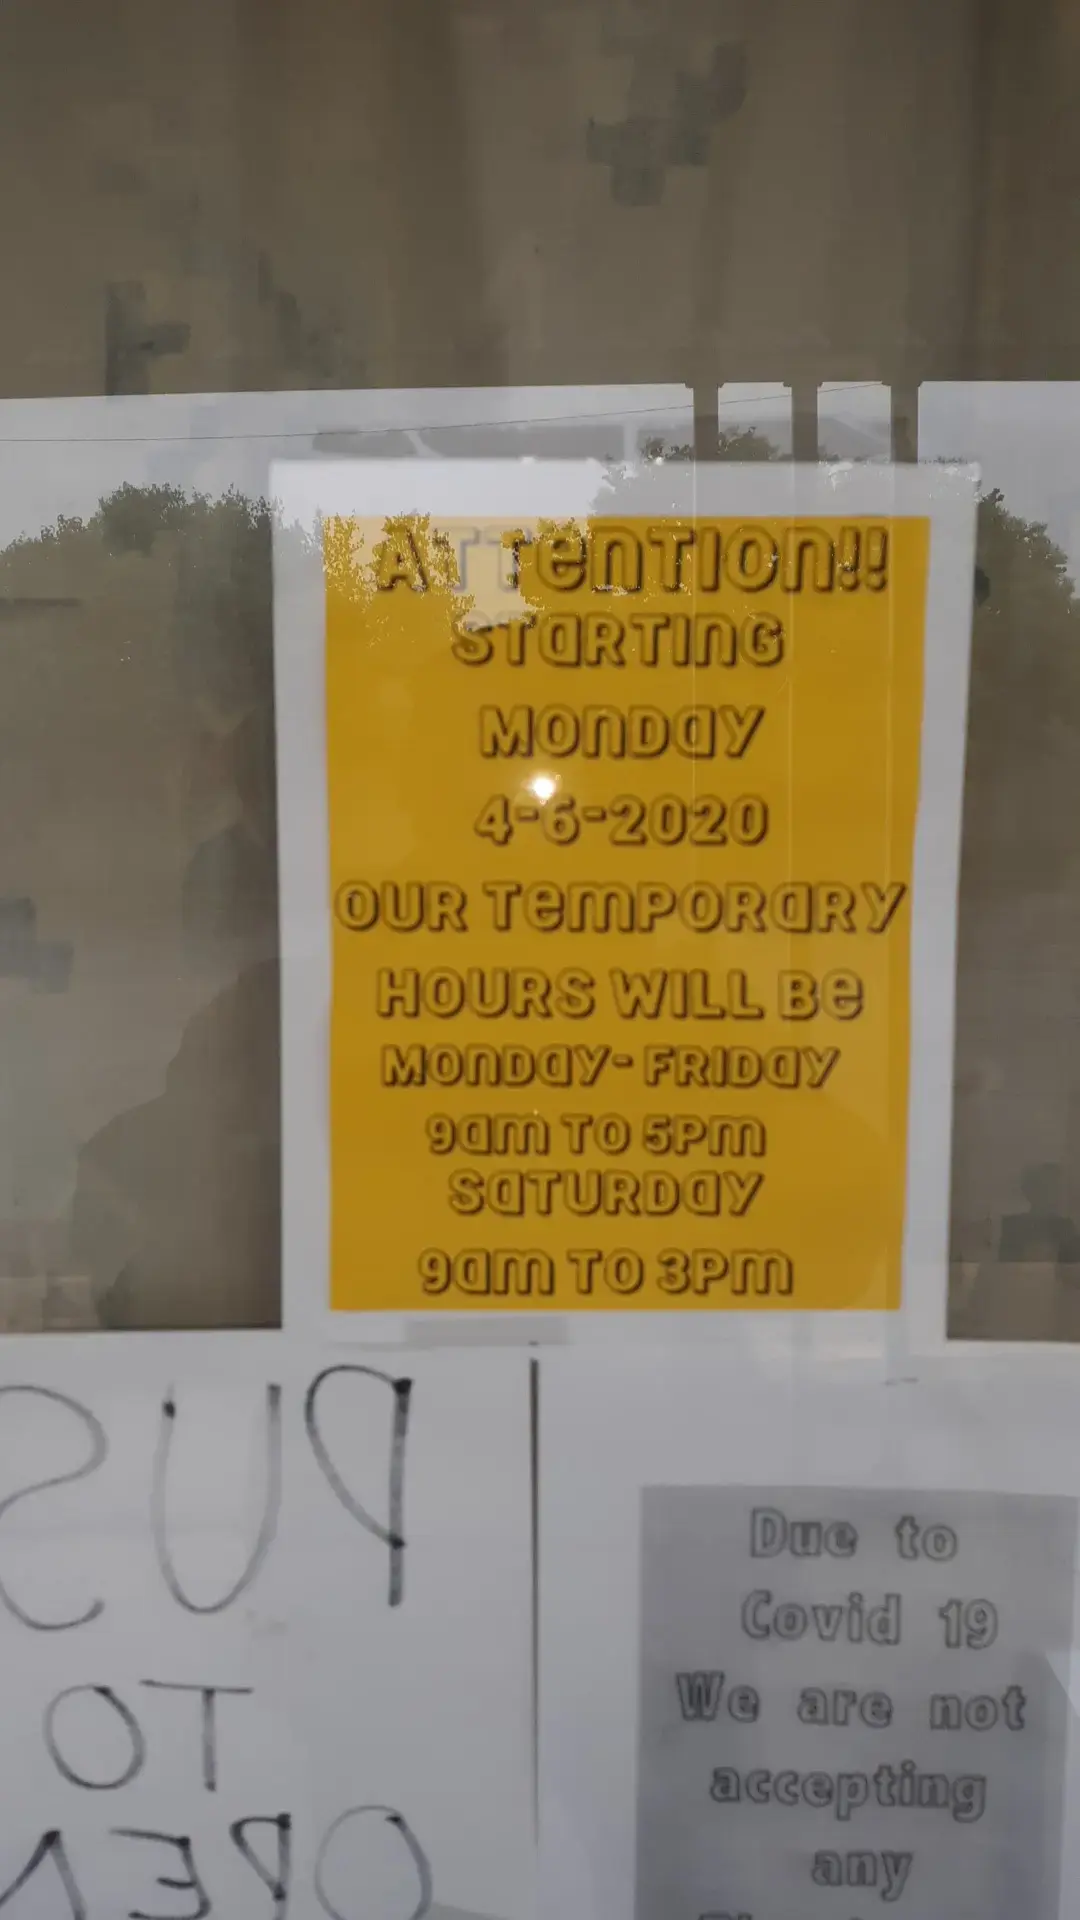 ATTENTION!!
STARTING
MONDAY
4-6-2020
OUR TEMPORARY
HOURS WILL BE
MONDAY- FRIDAY
9am TO 5PM
SATURDAY
9am TO 3PM
PUS
TO
OPEN
Due to
Covid 19
We are not
accepting
any